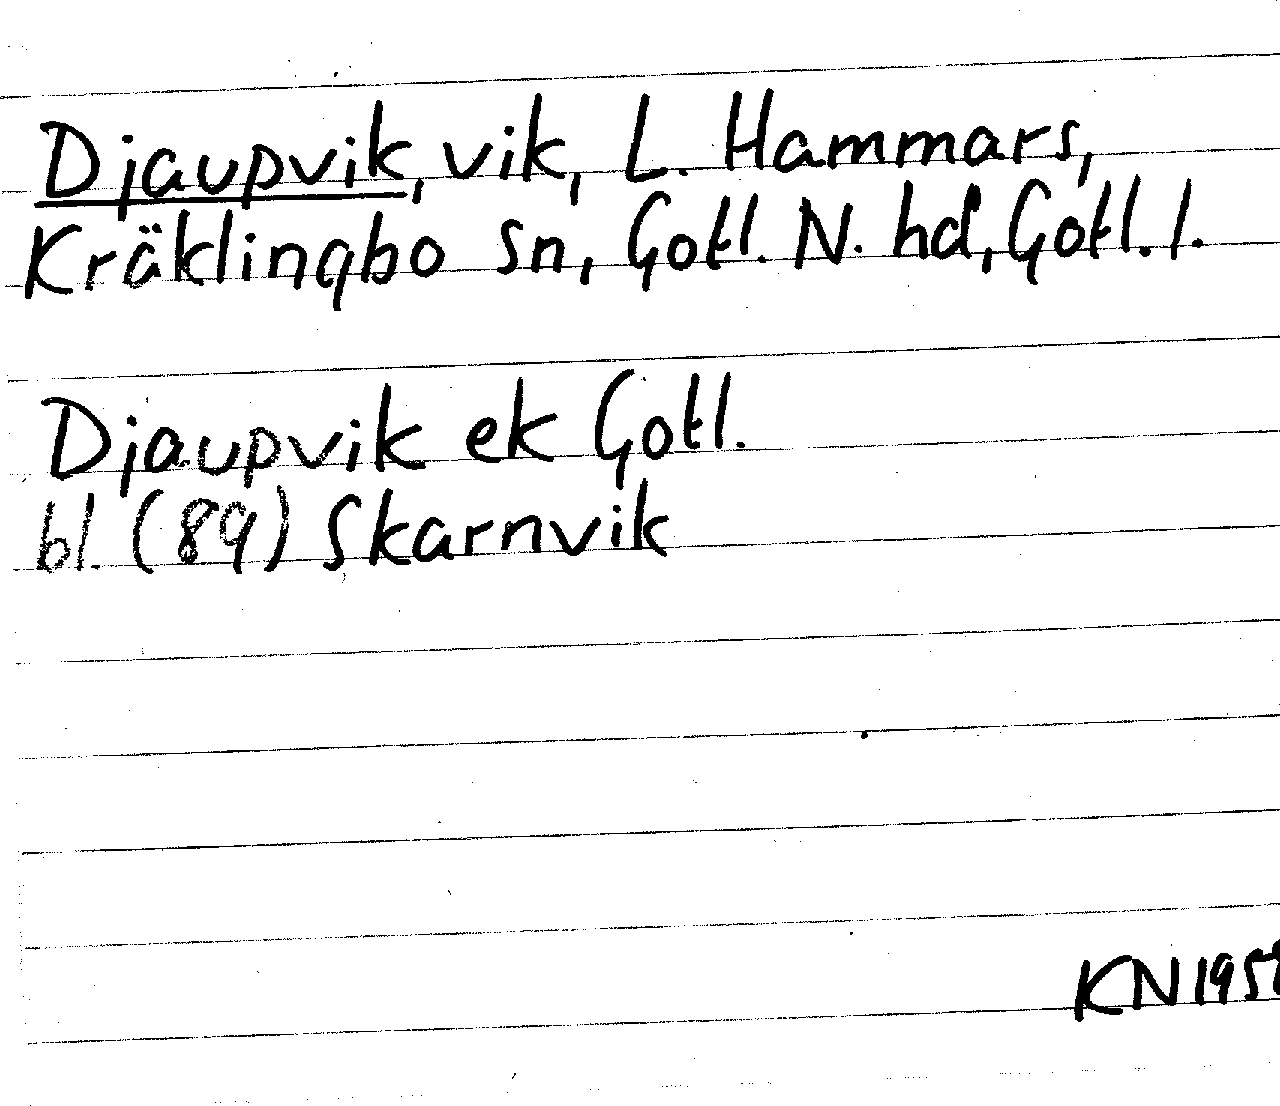 Djaupvik, vik, L. Hammars,
Kräklingbo sn, Gotl. N. hd, Gotl. l.
Djaupvik ek Gotl.
bl. (89) Skarnvik
KN